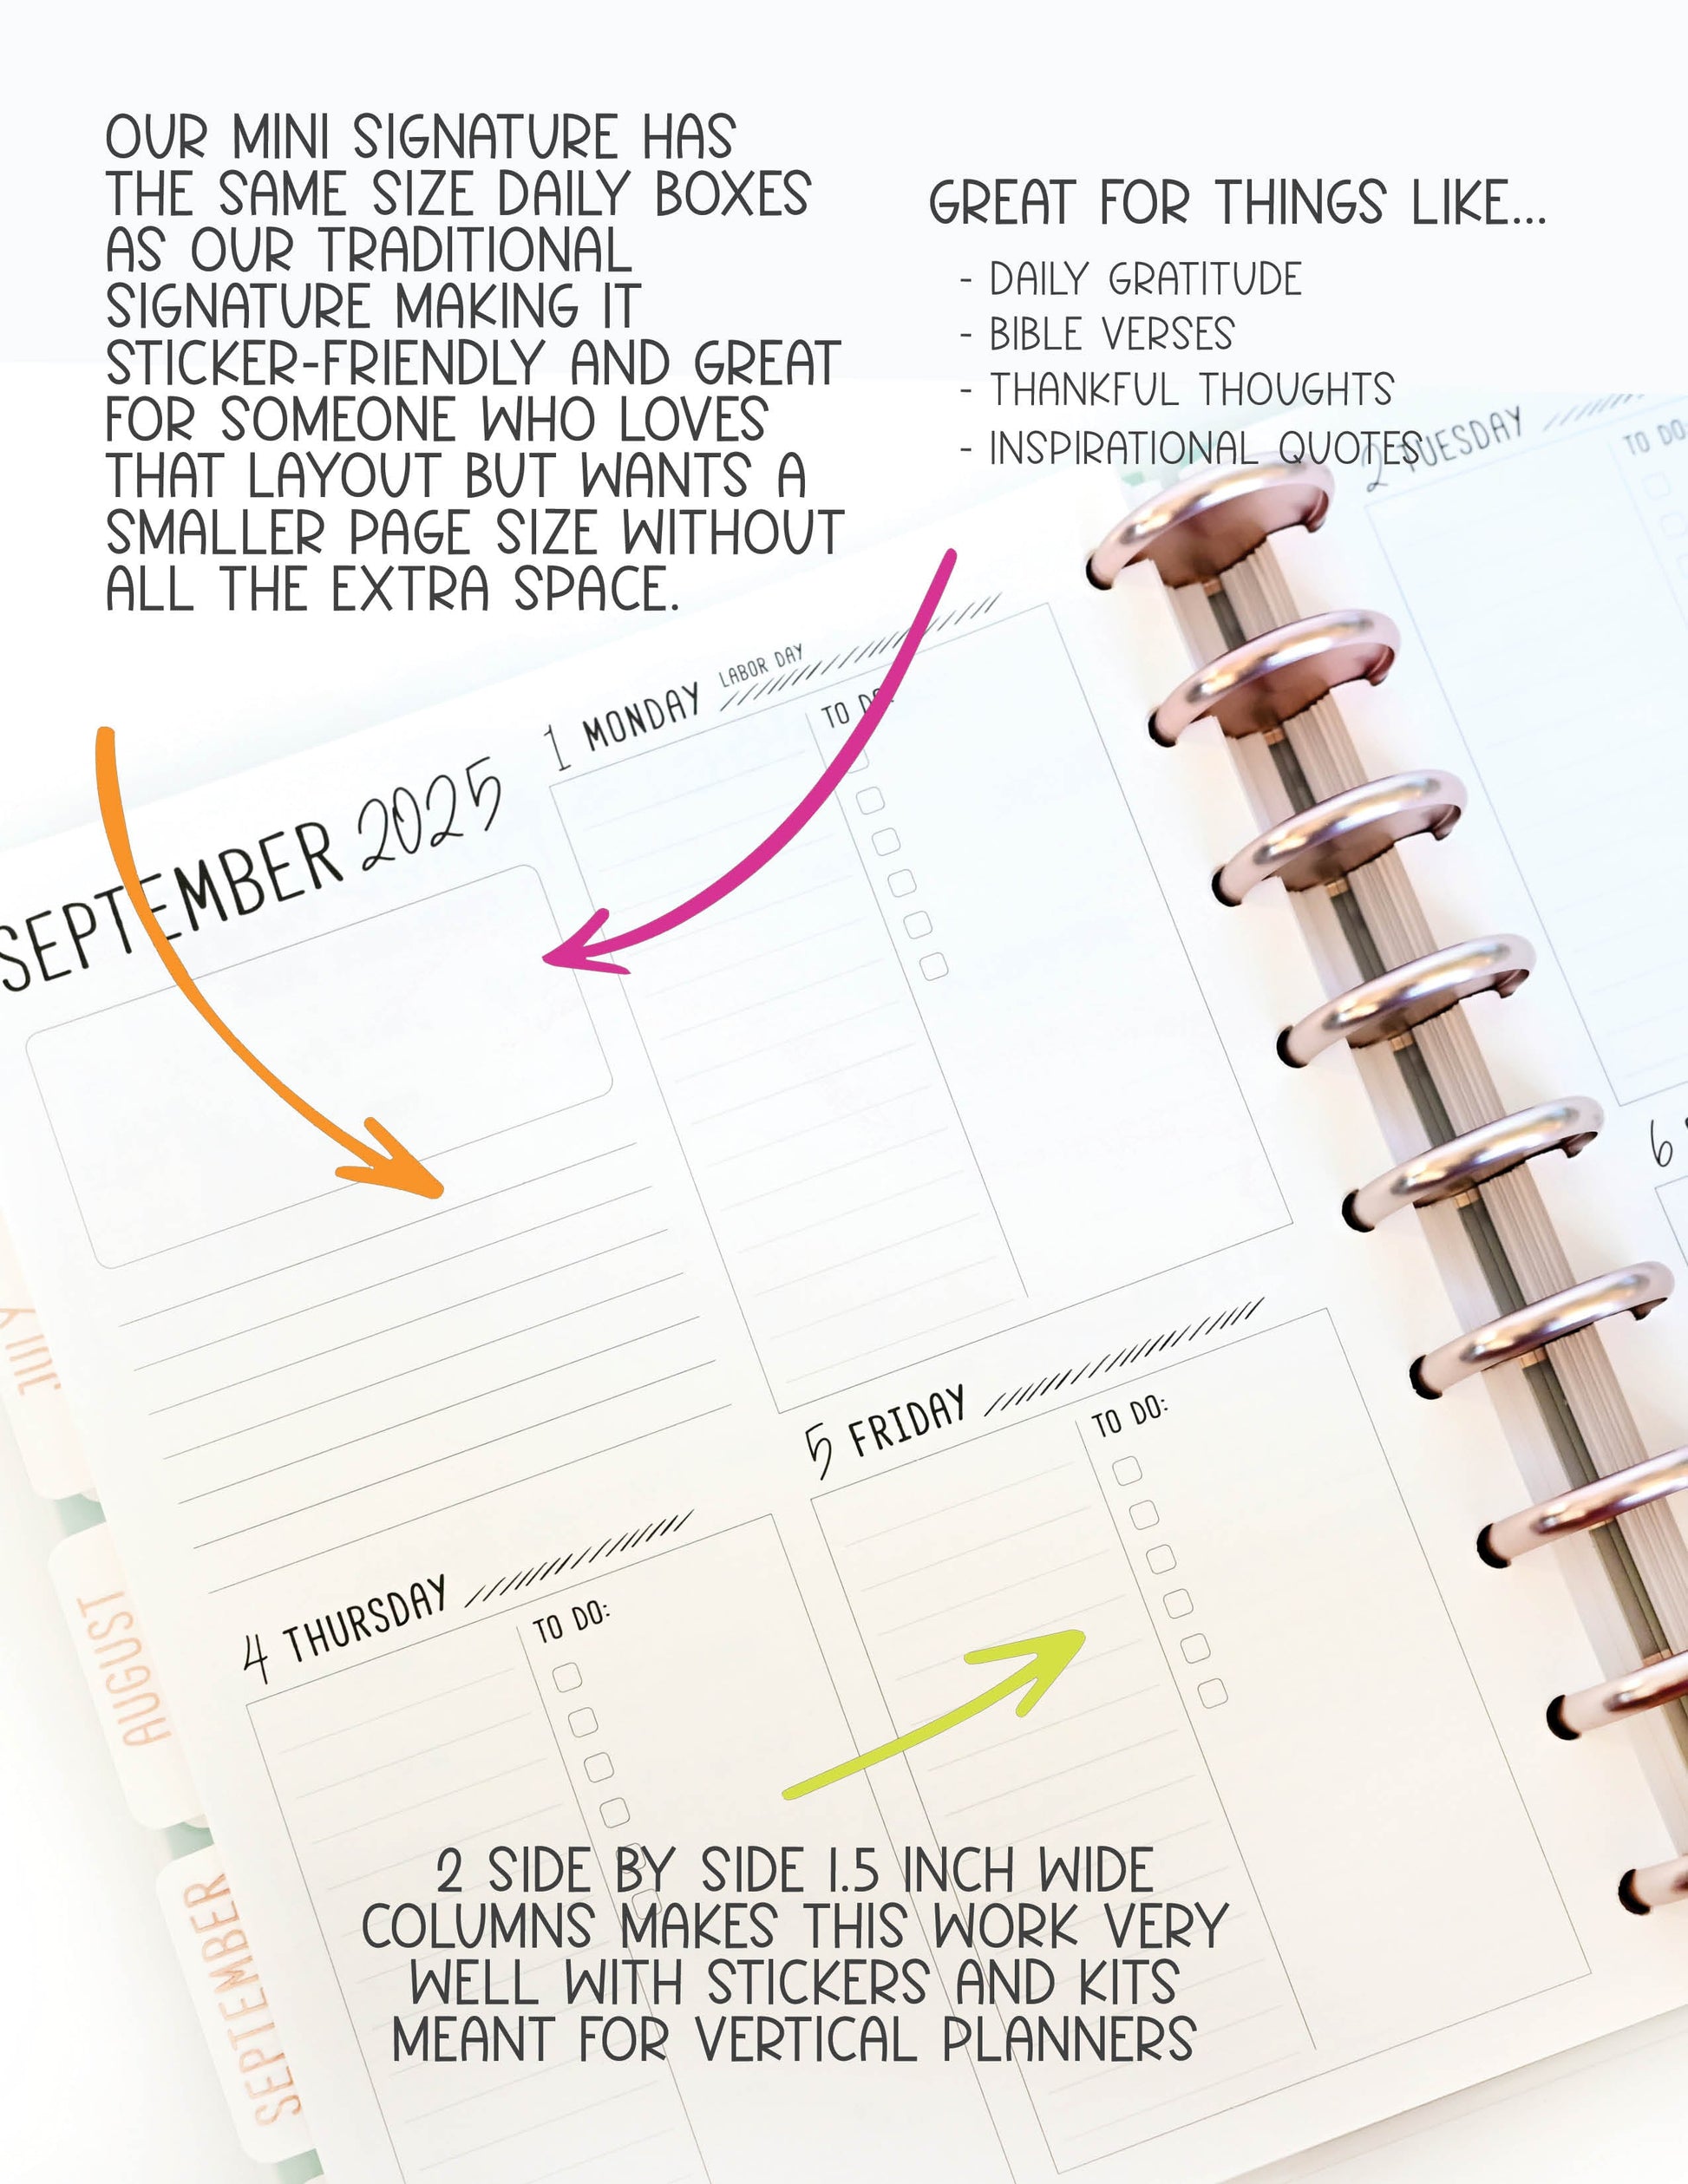 OUR MINI SIGNATURE HAS
THE SAME SIZE DAILY BOXES
AS OUR TRADITIONAL
SIGNATURE MAKING IT
STICKER-FRIENDLY AND GREAT
FOR SOMEONE WHO LOVES
THAT LAYOUT BUT WANTS A
SMALLER PAGE SIZE WITHOUT
ALL THE EXTRA SPACE.
GREAT FOR THINGS LIKE...
- DAILY GRATITUDE
- BIBLE VERSES
- THANKFUL THOUGHTS
- INSPIRATIONAL QUOTES
2 TUESDAY
TO DO:
1 MONDAY LABOR DAY
TO DO:
SEPTEMBER 2025
6
5 FRIDAY
TO DO:
4 THURSDAY
TO DO:
JULY
AUGUST
SEPTEMBER
2 SIDE BY SIDE 1.5 INCH WIDE
COLUMNS MAKES THIS WORK VERY
WELL WITH STICKERS AND KITS
MEANT FOR VERTICAL PLANNERS